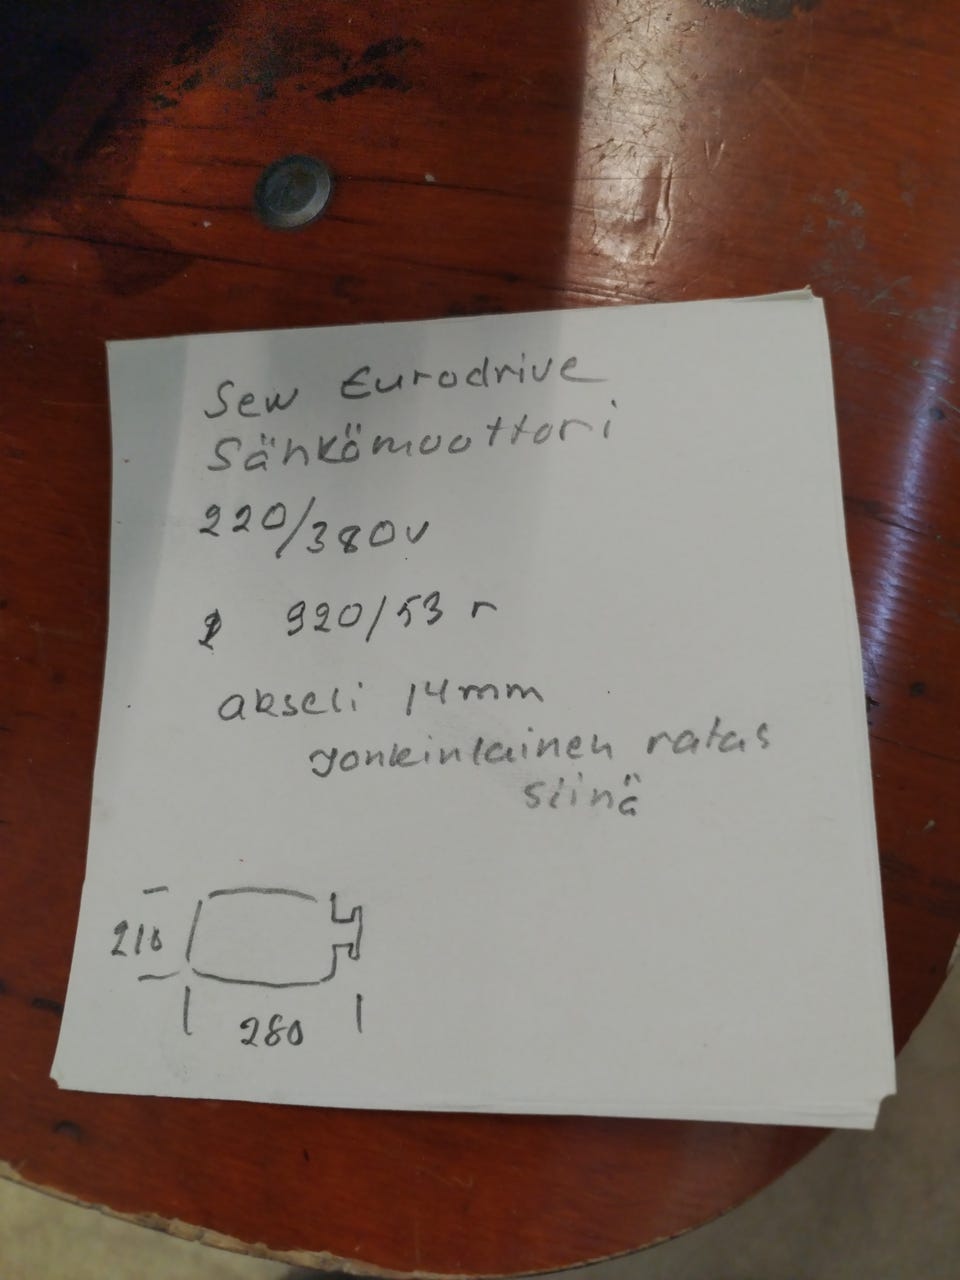 Sew Eurodrive
Sähkömoottori
220/380v
920/53 r
akseli 14mm
jonkinlainen ratas
siinä
210
280